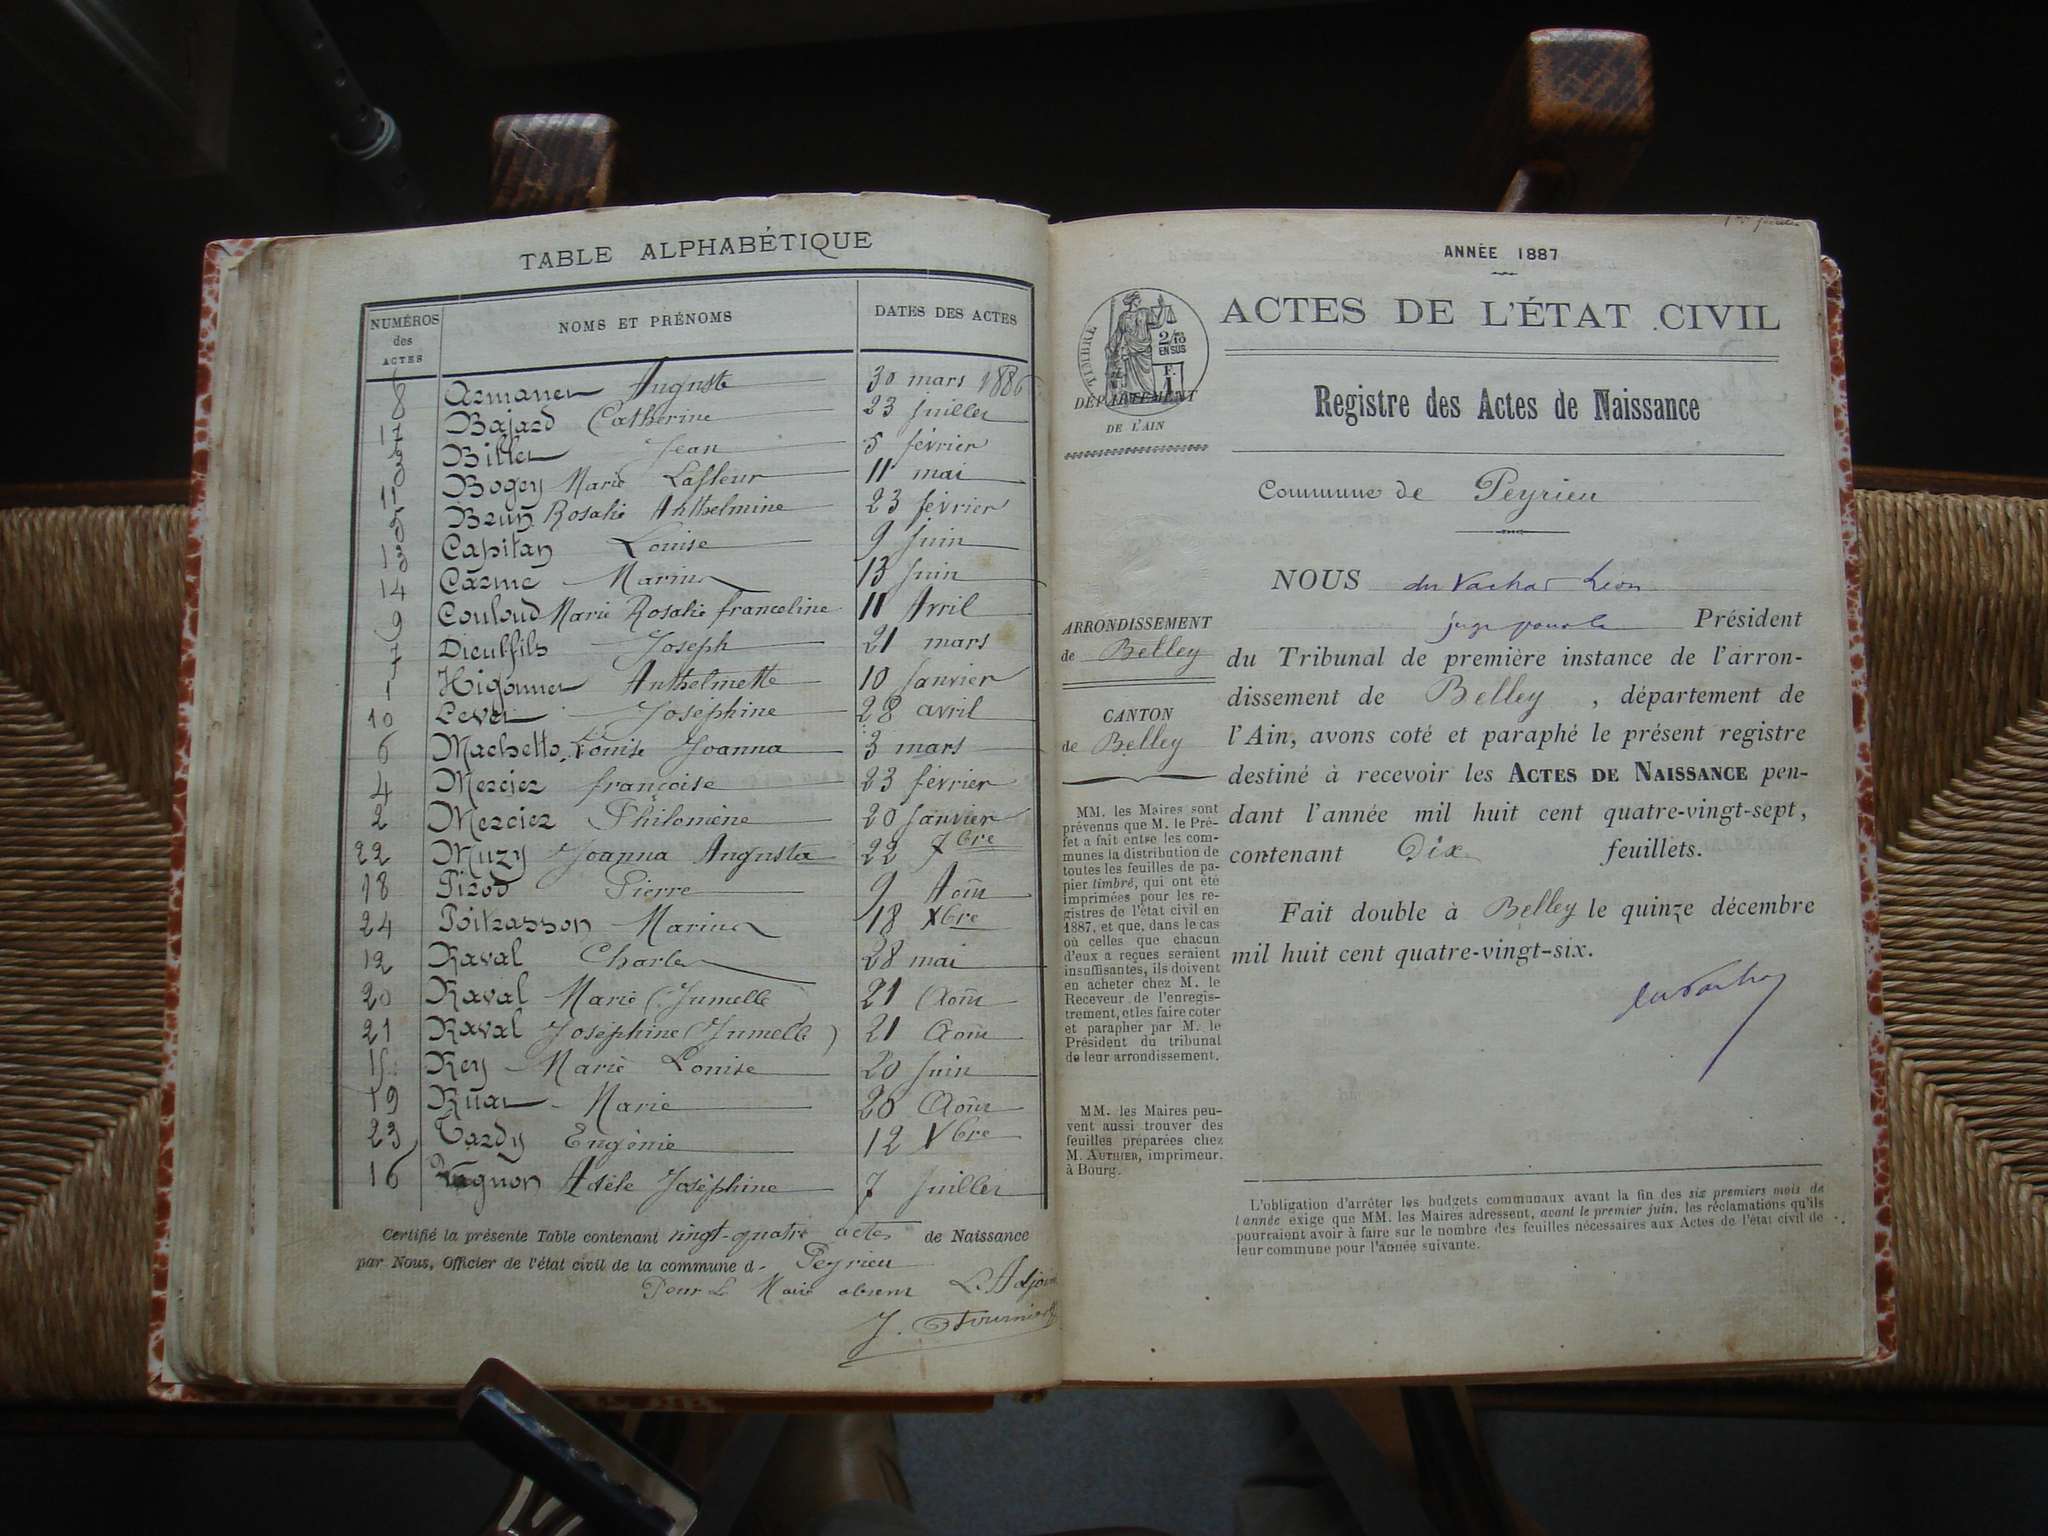 TABLE ALPHABÉTIQUE
NUMÉROS
des
ACTES
NOMS ET PRÉNOMS
DATES DES ACTES
8 Auguste 30 mars 1886
17 Bajard Catherine 23 Juillet
3 Billet Jean 5 février
11 Bogey Marie Lafleur 11 mai
5 Brun Rosalie Anthelmine 23 février
13 Capitan Louise 9 Juin
14 Carme Marius 13 Juin
9 Couloud Marie Rosalie franceline 11 Avril
7 Dieulfils Joseph 21 mars
1 Higonnet Anthelmette 10 Janvier
10 Levet Josephine 28 avril
6 Machetto Louise Joanna 3 mars
4 Mercier françoise 23 février
2 Mercier Philomène 20 Janvier
22 Muzy Joanna Augusta 22 7bre
18 Pirod Pierre 9 Août
24 Poitrasson Marius 18 Xbre
12 Raval Charles 28 mai
20 Raval Marie (Jumelle) 21 Août
21 Raval Joséphine (Jumelle) 21 Août
15 Rey Marie Louise 20 Juin
19 Ruat Marie 20 Août
23 Tardy Eugénie 12 Xbre
16 Vagnon Adèle Joséphine 7 Juillet
Certifié la présente Table contenant vingt-quatre actes de Naissance
par Nous, Officier de l'état civil de la commune d. Peyrieu
Pour Le Maire absent L'Adjoint
J. Fournier
ANNÉE 1887
TIMBRE
2/10
EN SUS
F.
1
DÉPARTEMENT
DE L'AIN
ACTES DE L'ÉTAT CIVIL
Registre des Actes de Naissance
Commune de Peyrieu
ARRONDISSEMENT
de Belley
CANTON
de Belley
MM. les Maires sont
prévenus que M. le Pré-
fet a fait entre les com-
munes la distribution de
toutes les feuilles de pa-
pier timbré, qui ont été
imprimées pour les re-
gistres de l'état civil en
1887, et que, dans le cas
où celles que chacun
d'eux a reçues seraient
insuffisantes, ils doivent
en acheter chez M. le
Receveur de l'enregis-
trement, et les faire coter
et parapher par M. le
Président du tribunal
de leur arrondissement.
MM. les Maires peu-
vent aussi trouver des
feuilles préparées chez
M. AUTHIER, imprimeur,
à Bourg.
NOUS du Vachat Léon
juge pour le Président
du Tribunal de première instance de l'arron-
dissement de Belley , département de
l'Ain, avons coté et paraphé le présent registre
destiné à recevoir les ACTES DE NAISSANCE pen-
dant l'année mil huit cent quatre-vingt-sept,
contenant Dix feuillets.
Fait double à Belley le quinze décembre
mil huit cent quatre-vingt-six.
L'obligation d'arrêter les budgets communaux avant la fin des six premiers mois de
l'année exige que MM. les Maires adressent, avant le premier juin, les réclamations qu'ils
pourraient avoir à faire sur le nombre des feuilles nécessaires aux Actes de l'état civil de
leur commune pour l'année suivante.